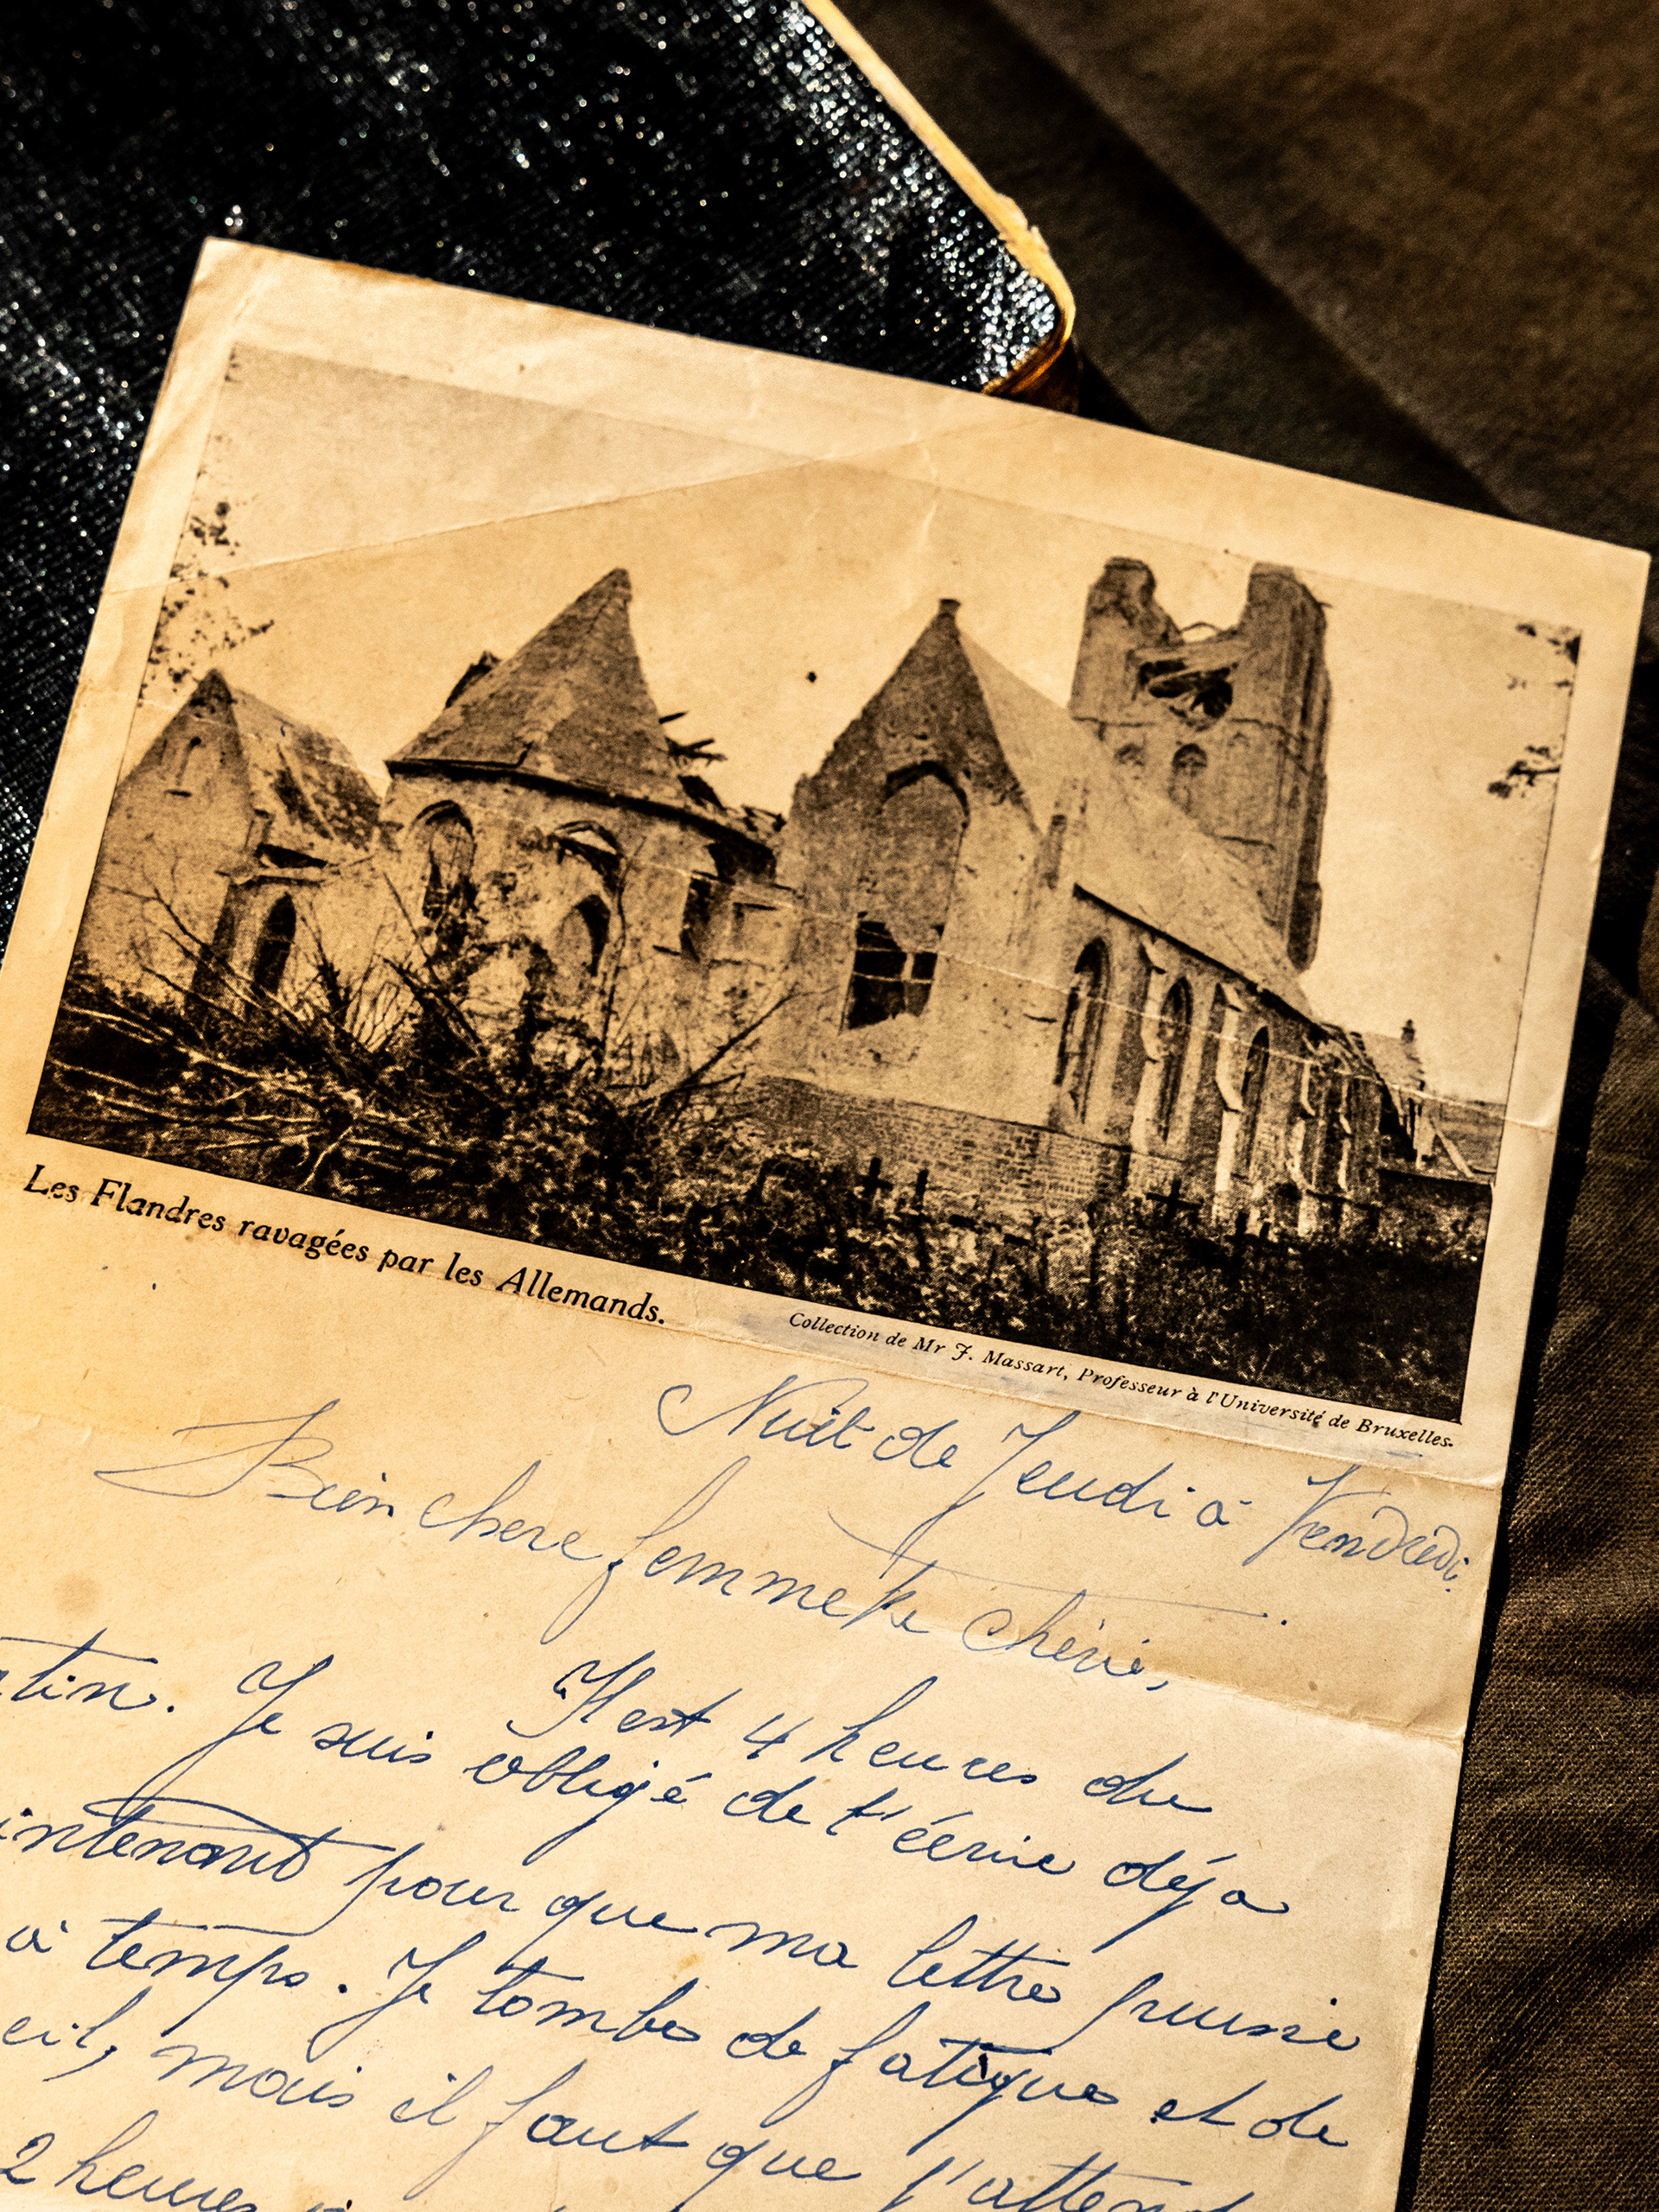 Les Flandres ravagées par les Allemands.
Collection de Mr J. Massart, Professeur à l'Université de Bruxelles.
Nuit de Jeudi à Vendredi.
Bien chere femmeke chérie,
Il est 4 heures du
tin. Je suis obligé de t'écrire déja
intenant pour que ma lettre puisse
à temps. Je tombe de fatigue et de
eil, mais il faut que j'atten
2 heures